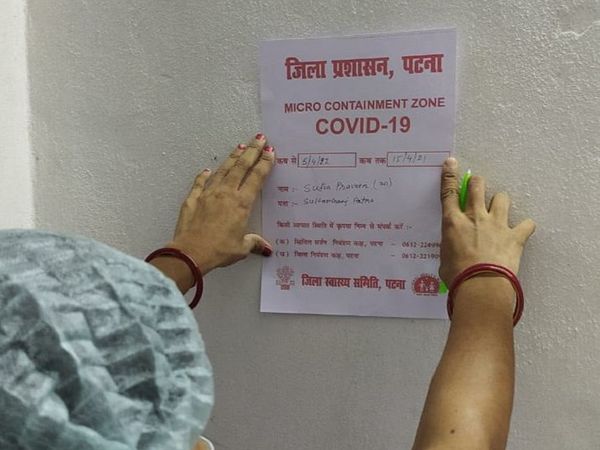 जिला प्रशासन, पटना
MICRO CONTAINMENT ZONE
COVID-19
कब से 5/4/22 कब तक 15/4/21
नाम :- Sufia Praveen (20)
पता :- Sultanganj Patna
किसी आपात स्थिति में कृपया निम्न से संपर्क करें :-
(क) सिविल सर्जन नियंत्रण कक्ष, पटना - 0612-
(ख) जिला नियंत्रण कक्ष, पटना - 0612-
जिला स्वास्थ्य समिति, पटना